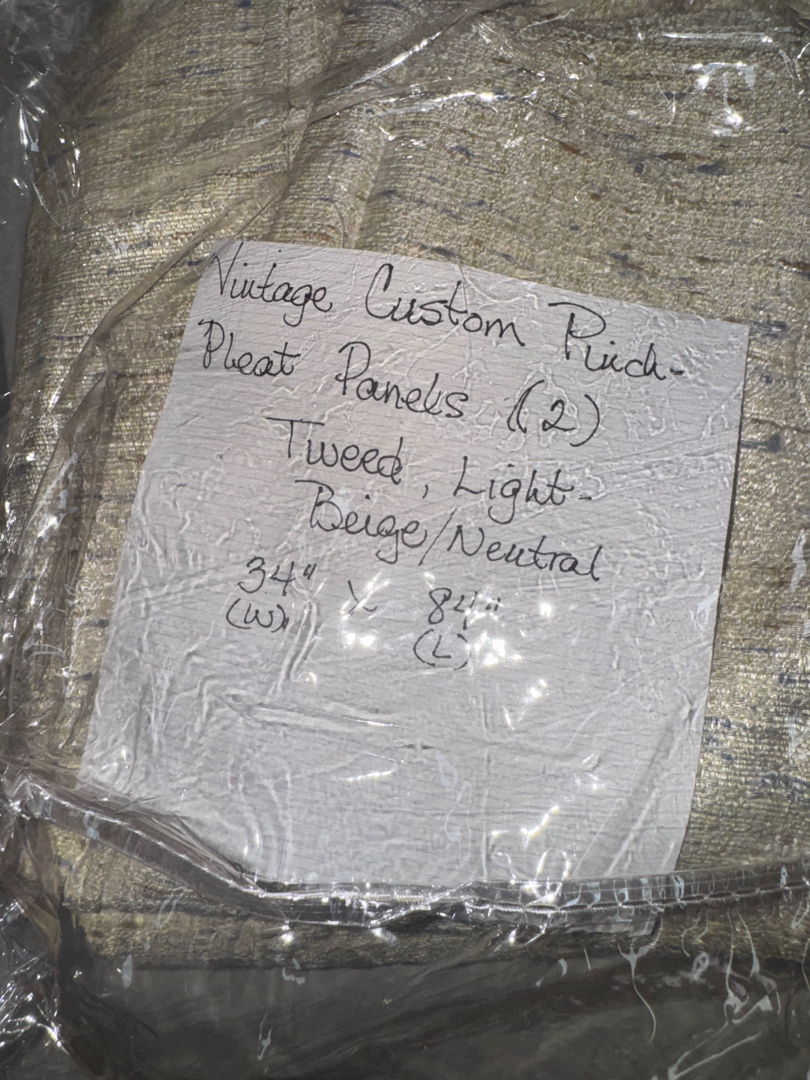 Vintage Custom Pinch-
Pleat Panels (2)
Tweed, Light-
Beige/Neutral
34" x 84"
(W) (L)